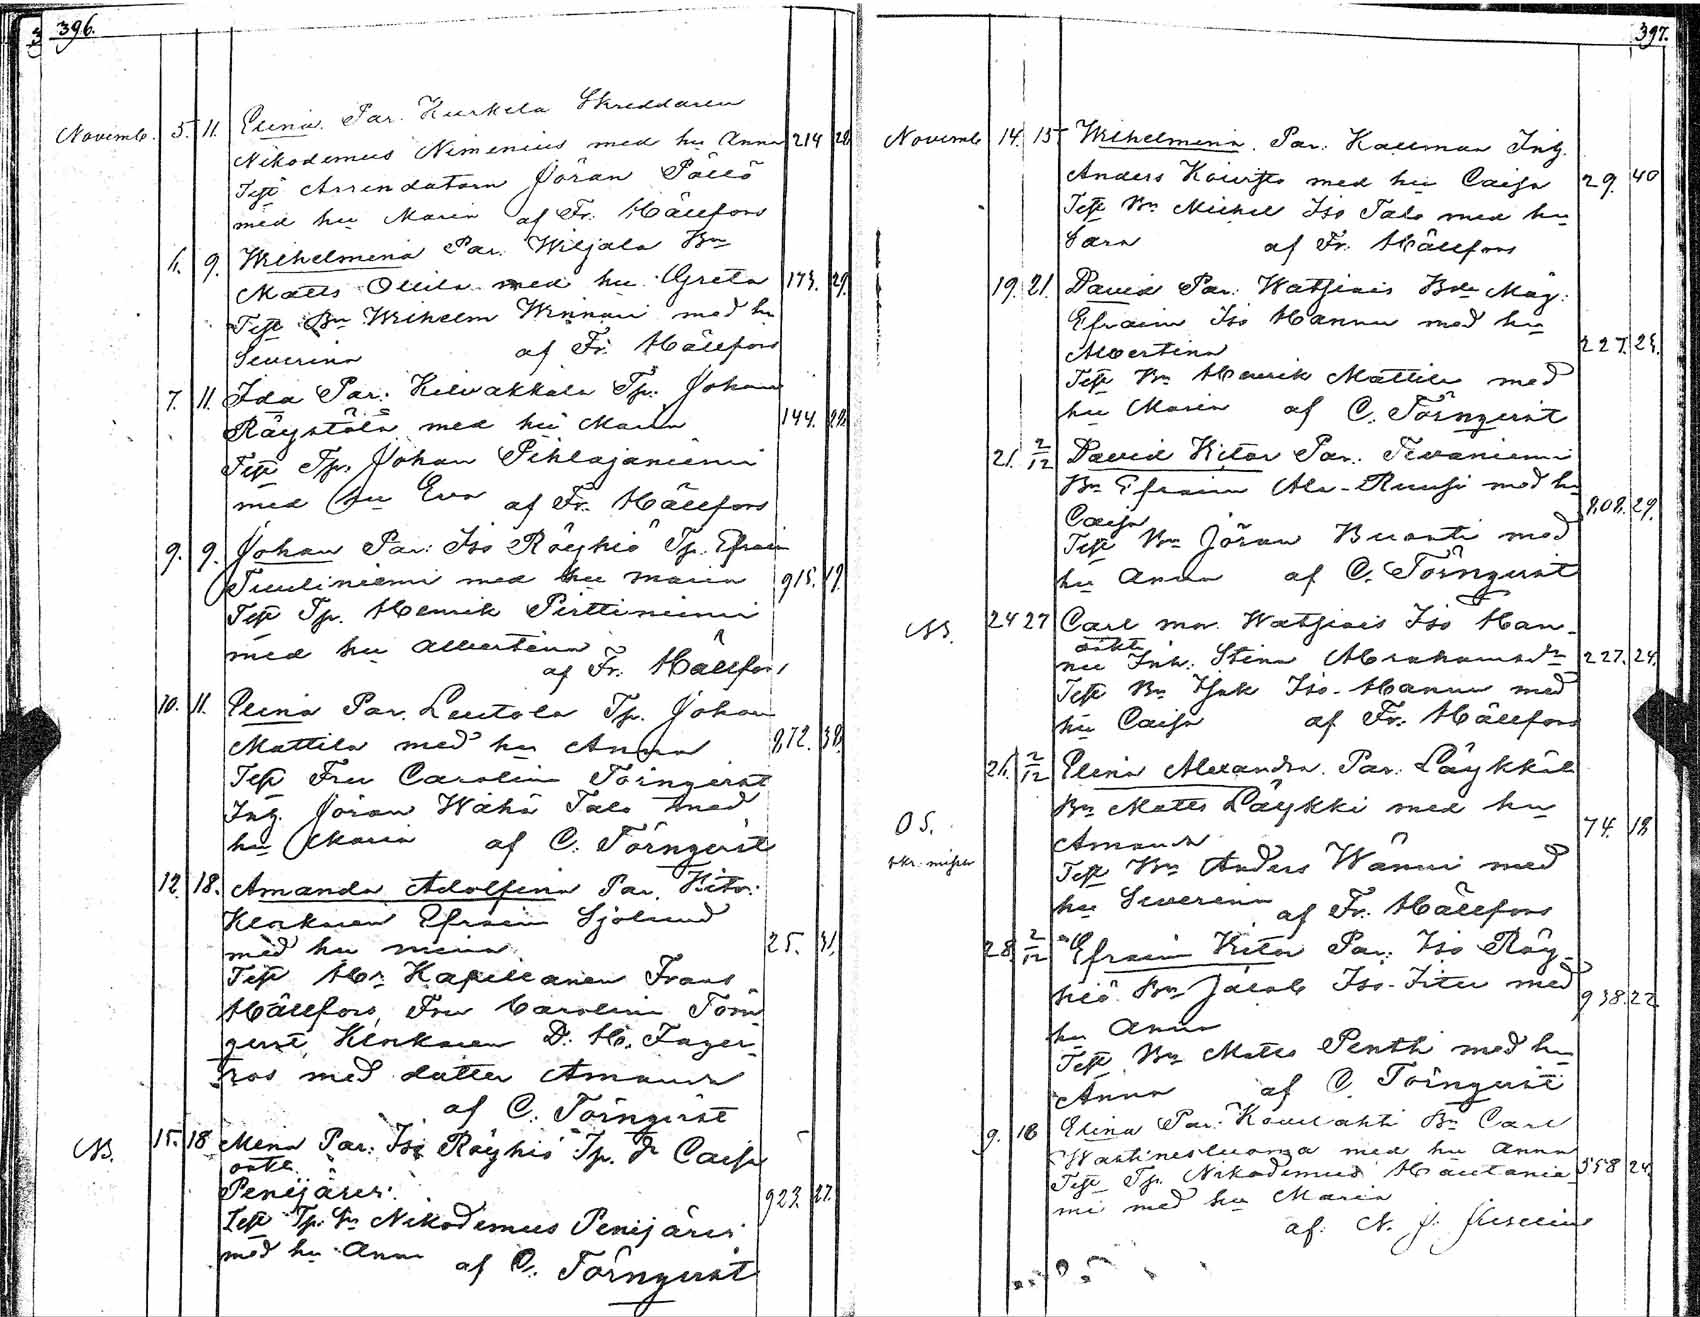 396.
Novemb. 5. 11. Elina. Par. Kurkela Skreddaren
Nikodemus Nimenius med hu Anna 214 28
Test Arrendatorn Jöran Pällö
med hu Maria af Fr. Hällfors
6. 9. Wilhelmina Par. Wiljala Bn
Matts Ollila med hu Greta 173. 29.
Test Bn Wilhelm Winnari med hu
Severina af Fr. Hällfors
7. 11. Ida Par: Kilvakkala Tp: Johan
Räystölä med hu Maria 144. 28.
Test Tp. Johan Pihlajaniemi
med hu Eva af Fr. Hällfors
9. 9. Johan Par: Iso Röyhiö Tp. Efraim
Tuuliniemi med hu Maria 915. 19.
Test Tp. Henrik Pirttiniemi
med hu Albertina
af Fr. Hällfors
10. 11. Elina Par. Leutola Tp. Johan
Mattila med hu Anna 872. 38.
Test Fru Carolin Törnqvist
Ing. Jöran Wähä Talo med
hu Maria af C. Törnqvist
12. 18. Amanda Adolfina Par. Kito:
Klockaren Efraim Sjölund
med hu Mina 25. 31.
Test Hr Kapellanen Frans
Hällfors, Fru Carolina Törn
qvist, Klockaren D. H. Fager-
ros med dotter Amanda
af C. Törnqvist
NB. 15. 18 Mina Par: Iso Röyhiö Tp. Dr Caisa
oäkta
Penijärvi. 923. 27.
Test Tp. Sn Nikodemus Penijärvi
med hu Anna af C. Törnqvist
397.
Novemb 14. 15 Wilhelmina. Par: Kallman Ing.
Anders Koivisto med hu Caisa 29. 40
Test Bn Michel Iso Talo med hu
Sara af Fr. Hällfors
19. 21. David Par: Watjiais Bde Måg:
Efraim Iso Hannu med hu
Albertina 227. 25.
Test Bn Henrik Mattila med
hu Maria af C. Törnqvist
21. 2/12 David Kitor Par. Tevaniemi
Bn Efraim Ala-Ruusi med hu
Caisa 808. 29.
Test Bn Jöran Buonti med
hu Anna af C. Törnqvist
NB. 24 27 Carl mor. Watjiais Iso Han-
oäkta
nu Inh: Stina Abrahamsdr 227. 24.
Test Bn Isak Iso-Hannu med
hu Caisa af Fr. Hällfors
26. 2/12 Elina Alexandra. Par: Läykkälä
Bn Matts Läykki med hu
OS. Amanda 74. 18
Test Bn Anders Wänni med
hu Severina af Fr. Hällfors
28. 2/12 Efraim Kitor Par: Iso Röy-
hiö Bn Jacob Iso-Iitu med 938. 22
hu Anna
Test Bn Matts Penthi med hu
Anna af C. Törnqvist
9. 18 Elina Par: Kovelahti Bn Carl
Wastinesluoma med hu Anna 558 24
Test Tp. Nikodemus Hautanie
mi med hu Maria
af: N. J. Juselius